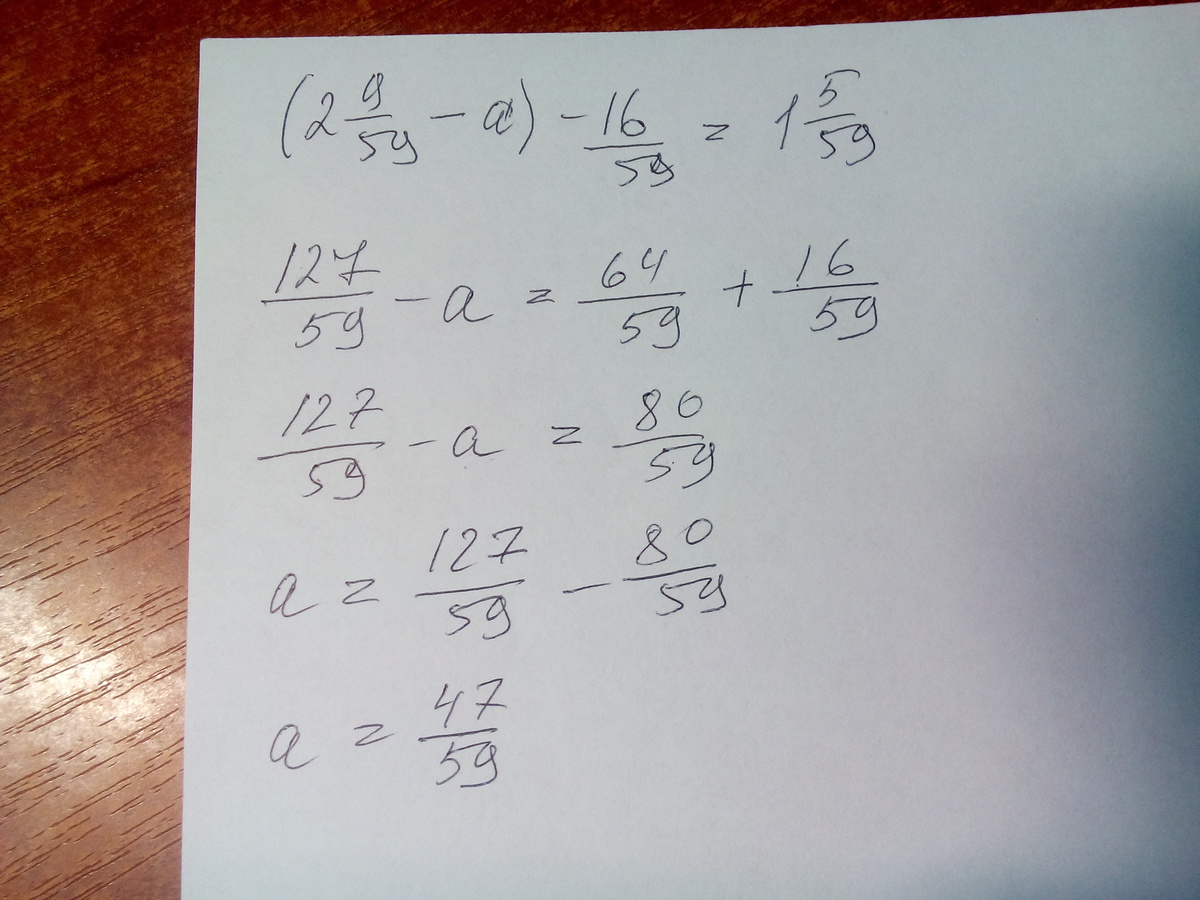 (2 9/59 - a) - 16/59 = 1 5/59
127/59 - a = 64/59 + 16/59
127/59 - a = 80/59
a = 127/59 - 80/59
a = 47/59